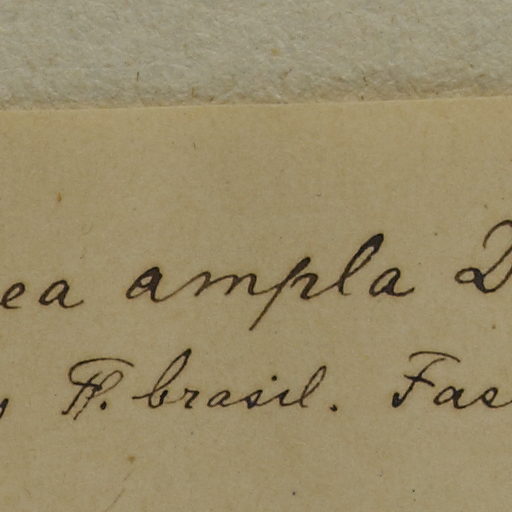 ea ampla D
Fl. brasil. Fas